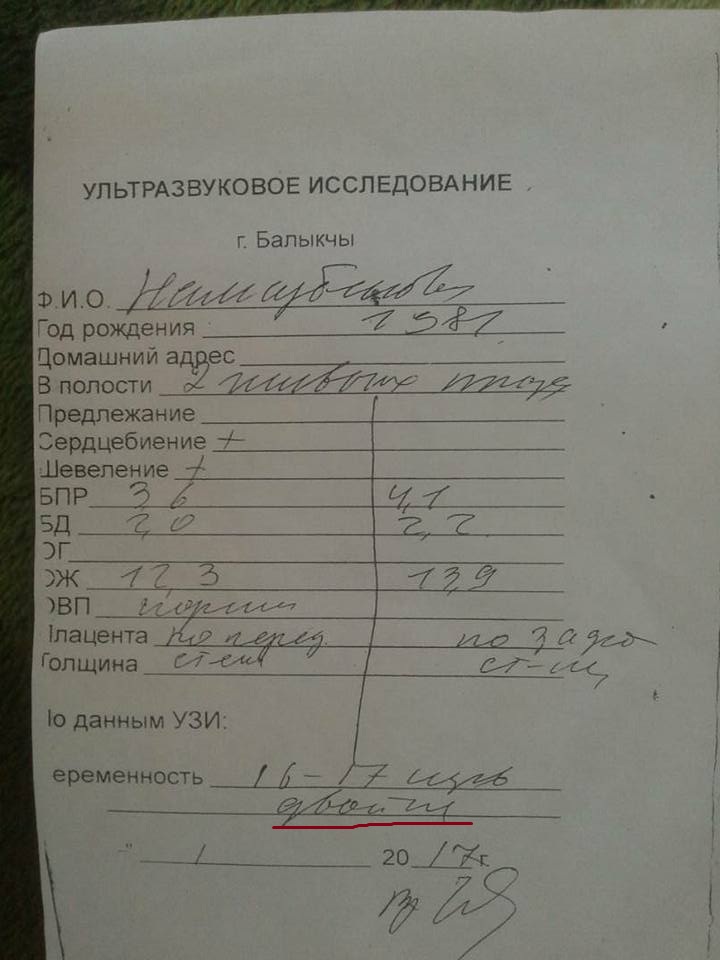 УЛЬТРАЗВУКОВОЕ ИССЛЕДОВАНИЕ
г. Балыкчы
Ф.И.О.
Год рождения 1981
Домашний адрес
В полости 2 живых плода
Предлежание
Сердцебиение +
Шевеление +
БПР 3,6 4,1
БД 2,0 2,2
ОГ
ОЖ 12,3 13,9
ОВП норма
Плацента по перед. по задн
Толщина стен ст-ке
По данным УЗИ:
еременность 16-17 нед
двойня
" 1 2017г.